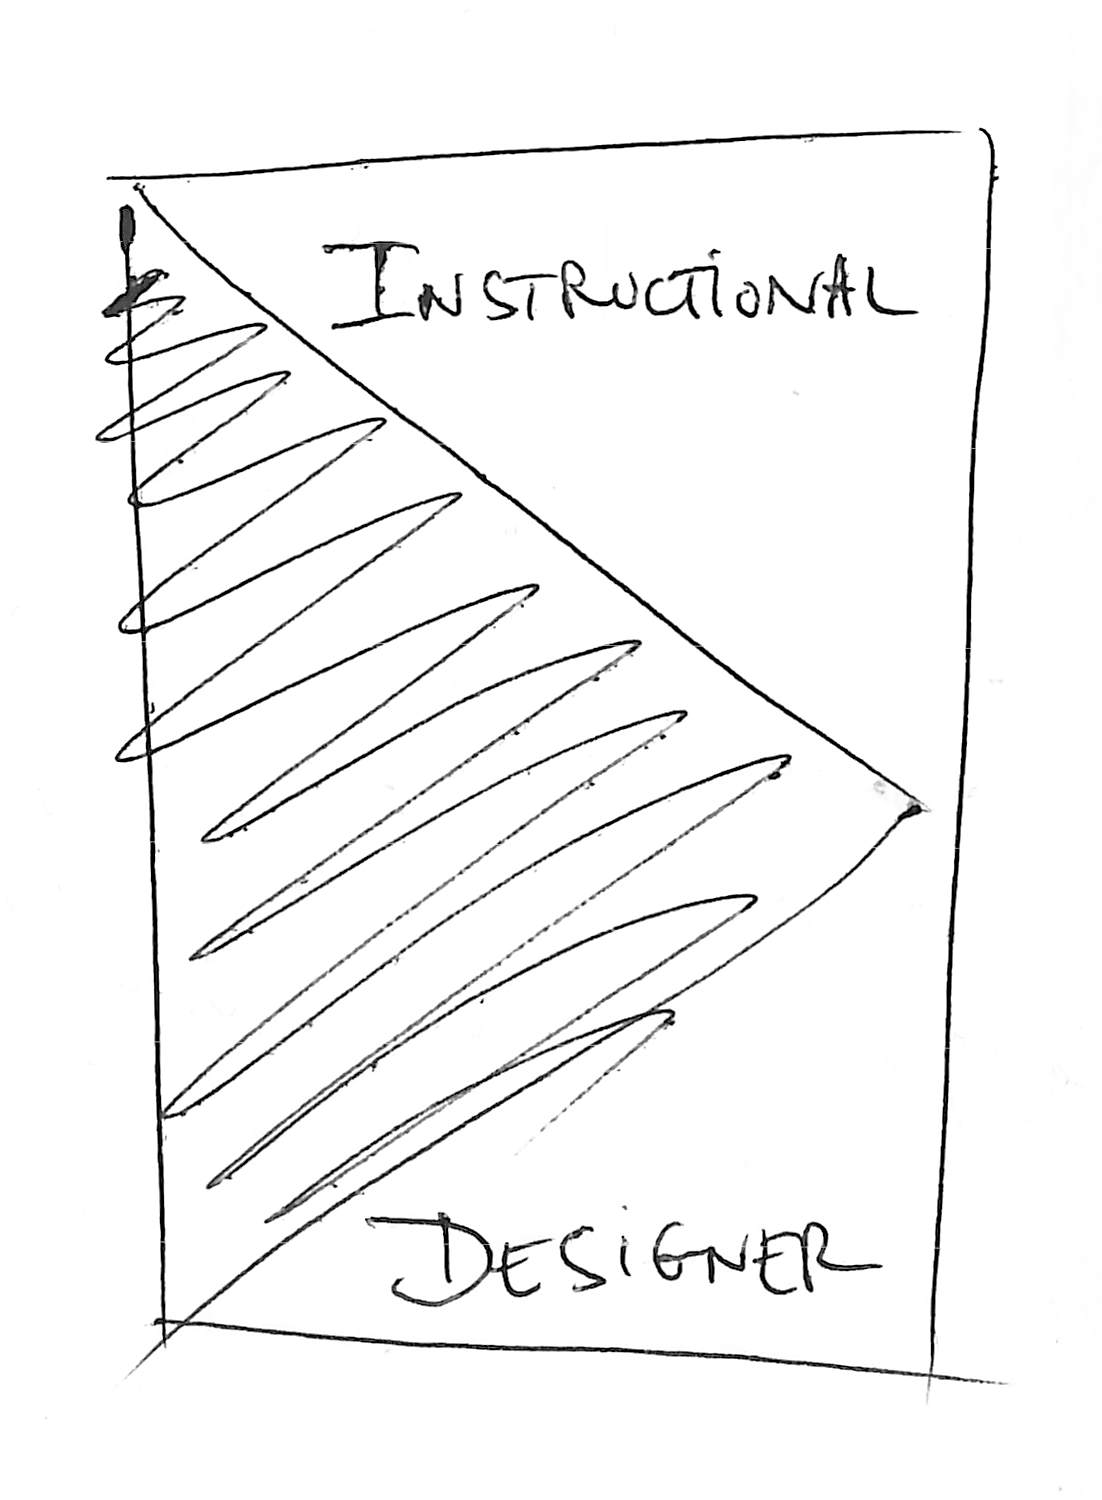 INSTRUCTIONAL
DESIGNER